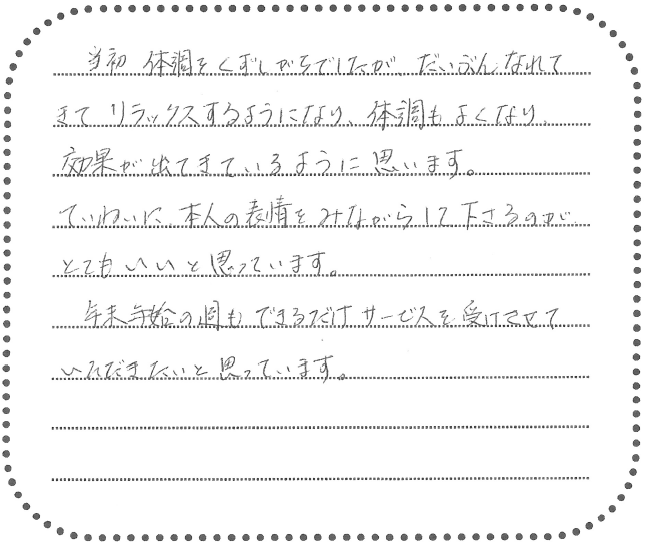 当初 体調をくずしがちでしたが、だいぶんなれて
きて リラックスするようになり、体調もよくなり、
効果が出てきているように思います。
ていねいに、本人の表情をみながらして下さるのが
とてもいいと思っています。
年末年始の週も できるだけ サービスを受けさせて
いただきたいと思っています。